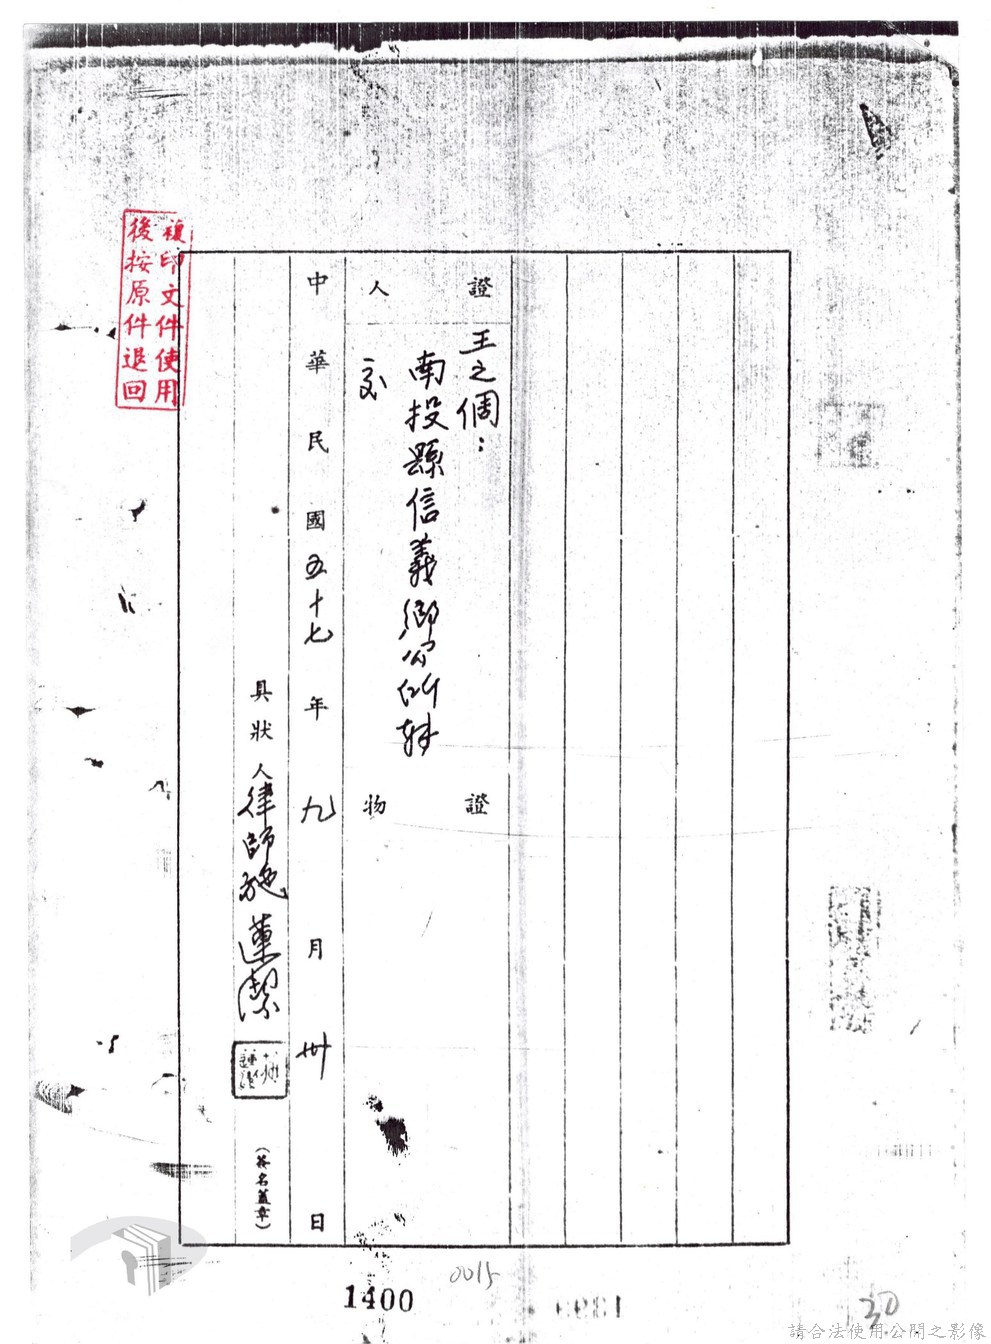 複印文件使用
後按原件退回
證人
王之倜：
南投縣信義鄉公所轉
交
證物
中華民國五十七年九月卅日
具狀人律師施蓮潔
（簽名蓋章）
0015
1400
30
請合法使用公開之影像